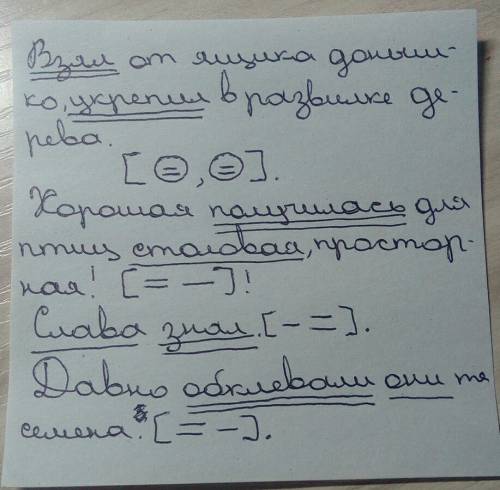 Взял от ящика доныш-
ко, укрепил в развилке де-
рева.
[ = , = ].
Хорошая получилась для
птиц столовая, простор-
ная! [ = — ]!
Слава знал. [ - = ].
Давно обклевали они те
семена. [ = - ].